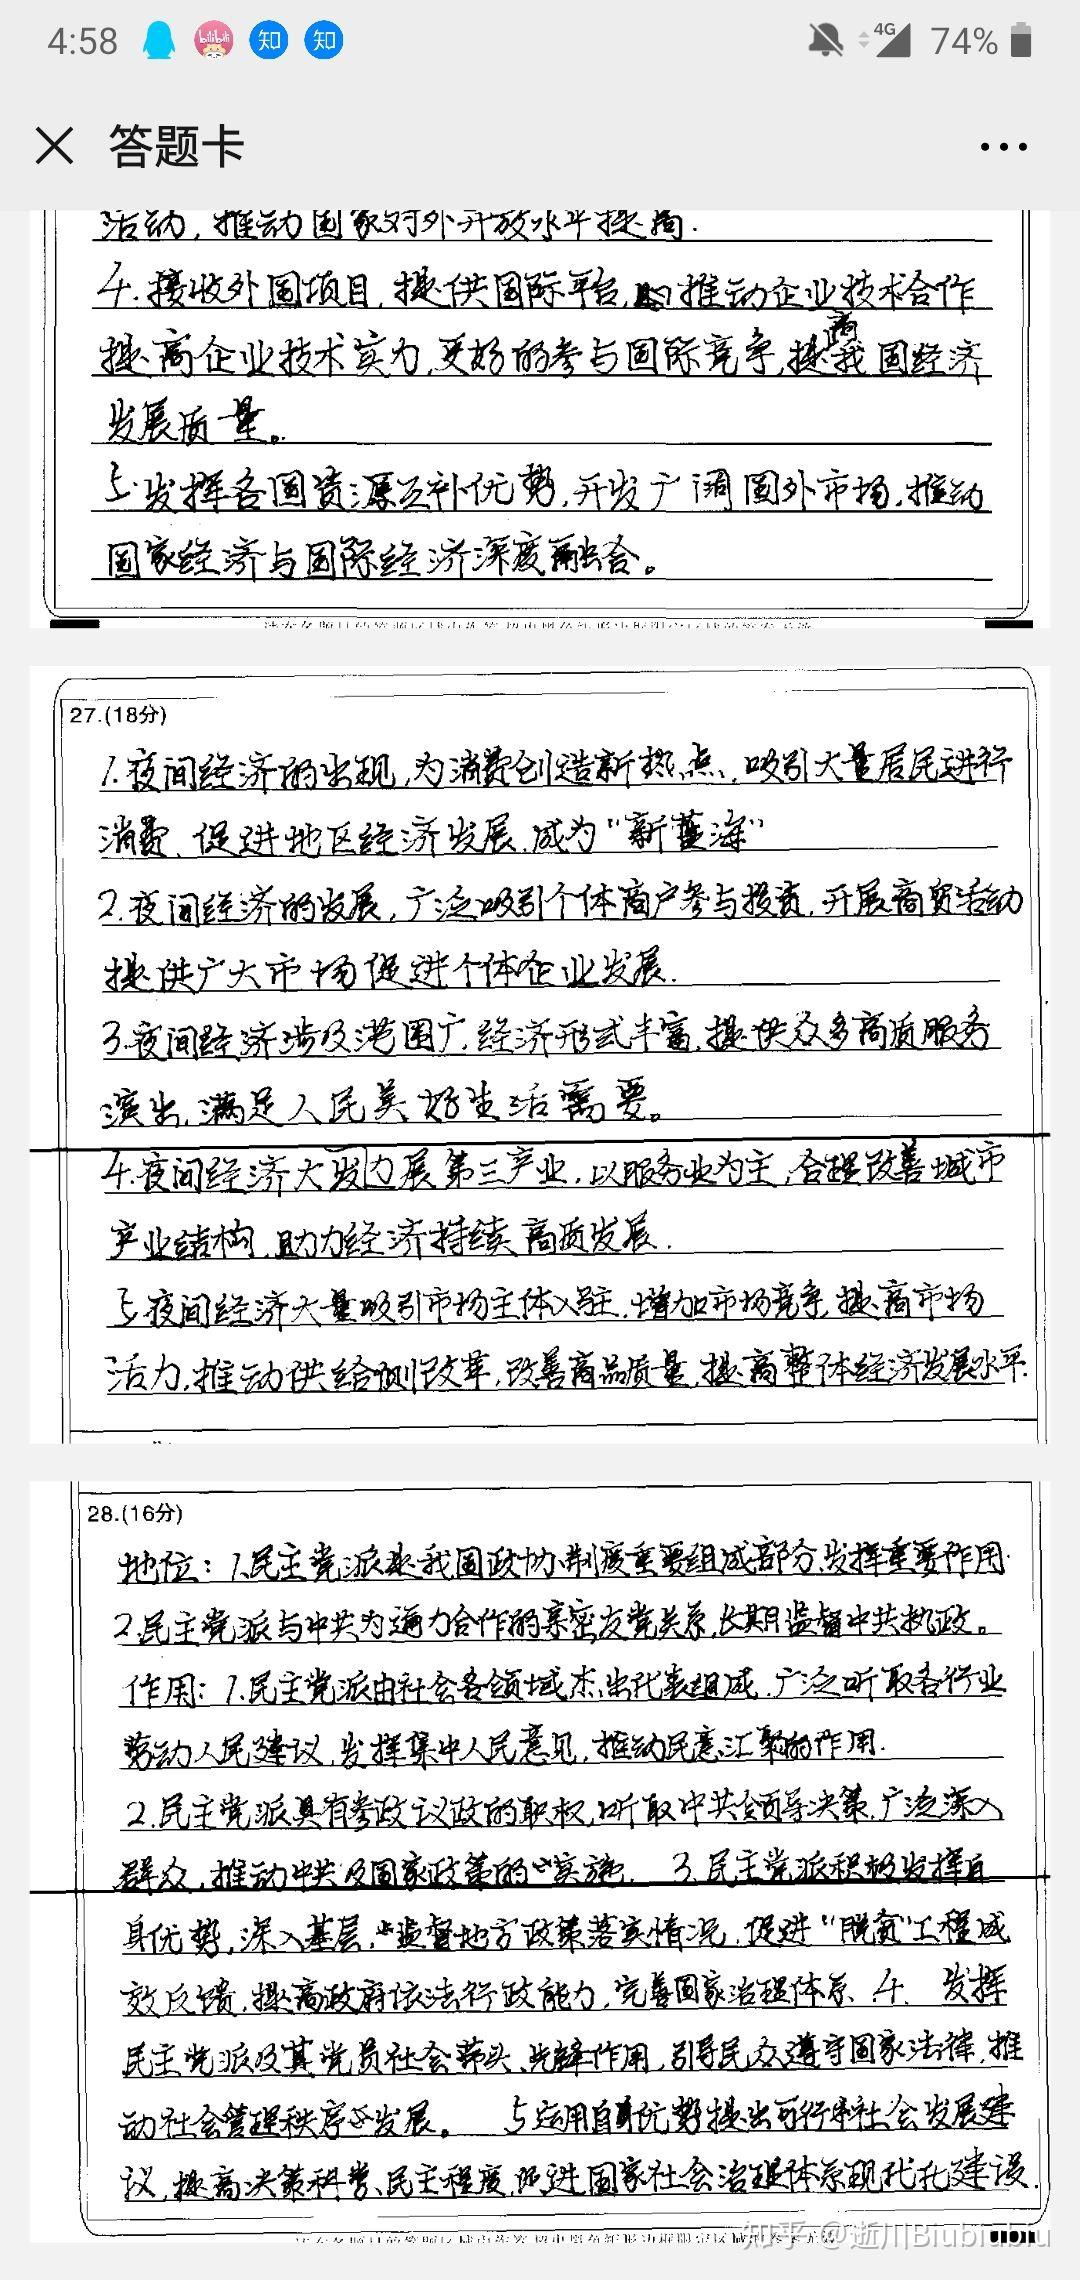 4:58 知 知 4G 74%
答题卡
活动,推动国家对外开放水平提高.
4.接收外国项目,提供国际平台,推动企业技术合作
提高企业技术实力,更好的参与国际竞争,提高我国经济
发展质量。
5.发挥各国资源互补优势,开发广阔国外市场,推动
国家经济与国际经济深度融合。
27.(18分)
1.夜间经济的出现,为消费创造新热点,吸引大量居民进行
消费、促进地区经济发展.成为“新蓝海”
2.夜间经济的发展,广泛吸引个体商户参与投资,开展商贸活动
提供广大市场促进个体企业发展.
3.夜间经济涉及范围广,经济形式丰富,提供众多高质服务
演出,满足人民美好生活需要。
4.夜间经济大力发展第三产业,以服务业为主,合理改善城市
产业结构,助力经济持续高质发展.
5.夜间经济大量吸引市场主体入驻,增加市场竞争,提高市场
活力,推动供给侧改革,改善商品质量,提高整体经济发展水平.
28.(16分)
地位:1.民主党派是我国政协制度重要组成部分,发挥重要作用.
2.民主党派与中共为通力合作的亲密友党关系,长期监督中共执政。
作用:1.民主党派由社会各领域杰出代表组成,广泛听取各行业
劳动人民建议,发挥集中人民意见,推动民意汇聚的作用.
2.民主党派具有参政议政的职权,听取中共领导决策,广泛深入
群众,推动中共及国家政策的实施. 3.民主党派积极发挥自
身优势,深入基层,监督地方政策落实情况,促进“脱贫”工程成
效反馈,提高政府依法行政能力,完善国家治理体系、4. 发挥
民主党派及其党员社会带头、先锋作用,引导民众遵守国家法律,推
动社会管理秩序发展。 5运用自身优势提出可行率社会发展建
议,提高决策科学、民主程度,促进国家社会治理体系现代化建设.
知乎 @逝川Biubiubiu